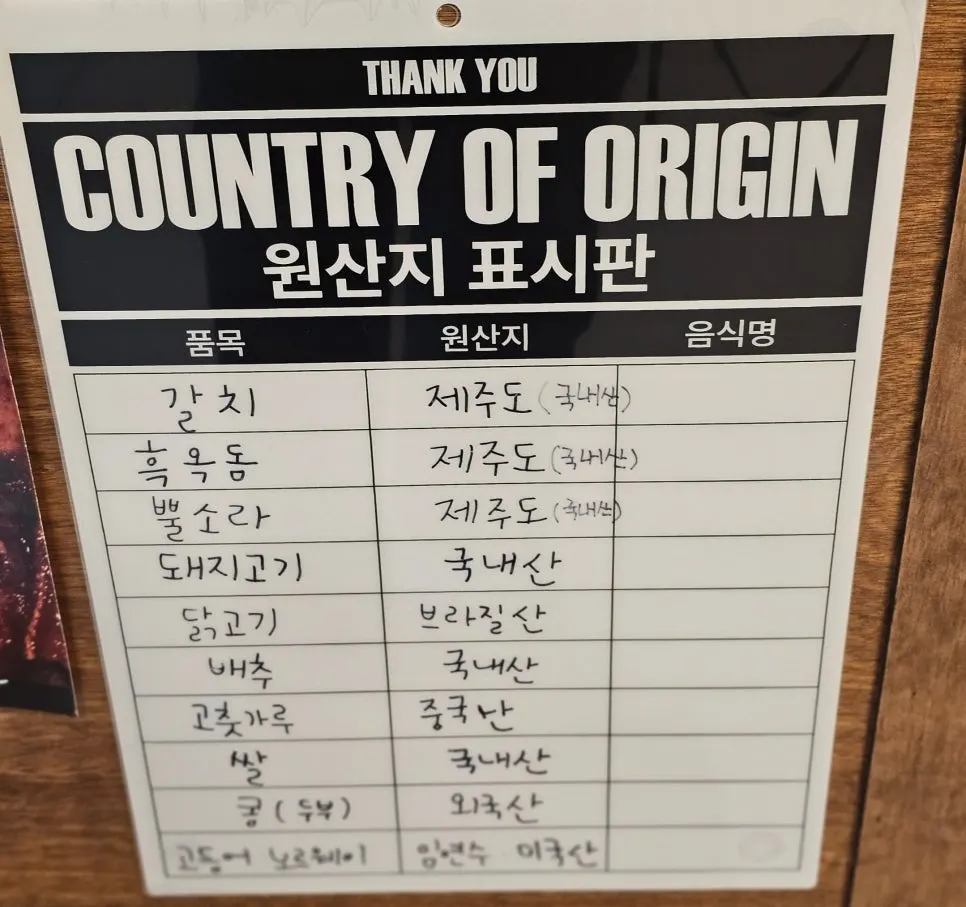 THANK YOU
COUNTRY OF ORIGIN
원산지 표시판
품목 원산지 음식명
갈치 제주도 (국내산)
흑옥돔 제주도 (국내산)
뿔소라 제주도 (국내산)
돼지고기 국내산
닭고기 브라질산
배추 국내산
고춧가루 중국난
쌀 국내산
콩 (두부) 외국산
고등어 노르웨이 임연수 미국산